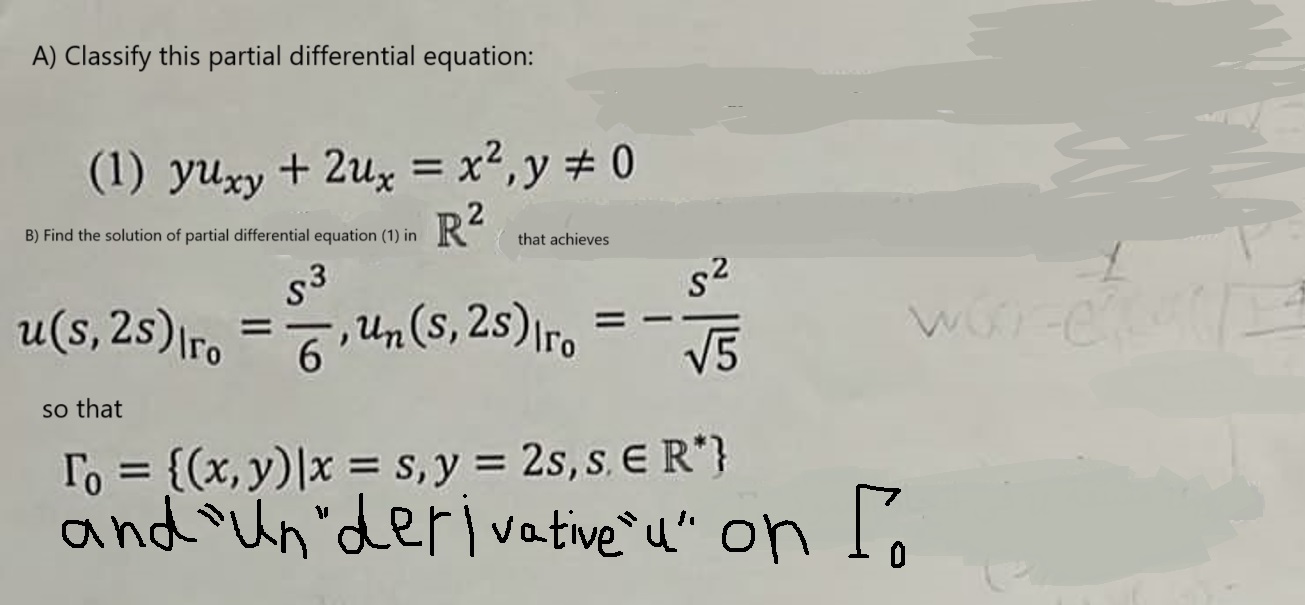 A) Classify this partial differential equation:
(1) yuₓᵧ + 2uₓ = x², y ≠ 0
B) Find the solution of partial differential equation (1) in ℝ² that achieves
u(s, 2s)|Γ₀ = s³/6 , uₙ(s, 2s)|Γ₀ = −s²/√5
so that
Γ₀ = {(x, y)|x = s, y = 2s, s. ∈ ℝ*}
and "un" derivative "u" on Γ₀